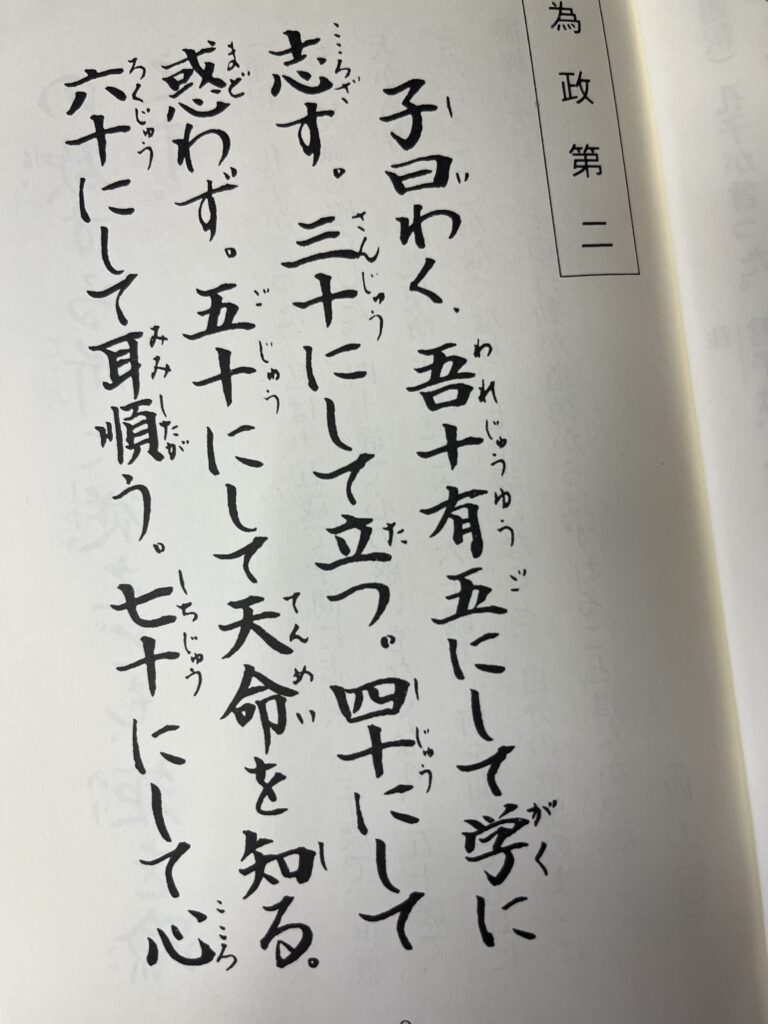 為政第二
子曰わく、吾十有五にして学に
志す。三十にして立つ。四十にして
惑わず。五十にして天命を知る。
六十にして耳順う。七十にして心